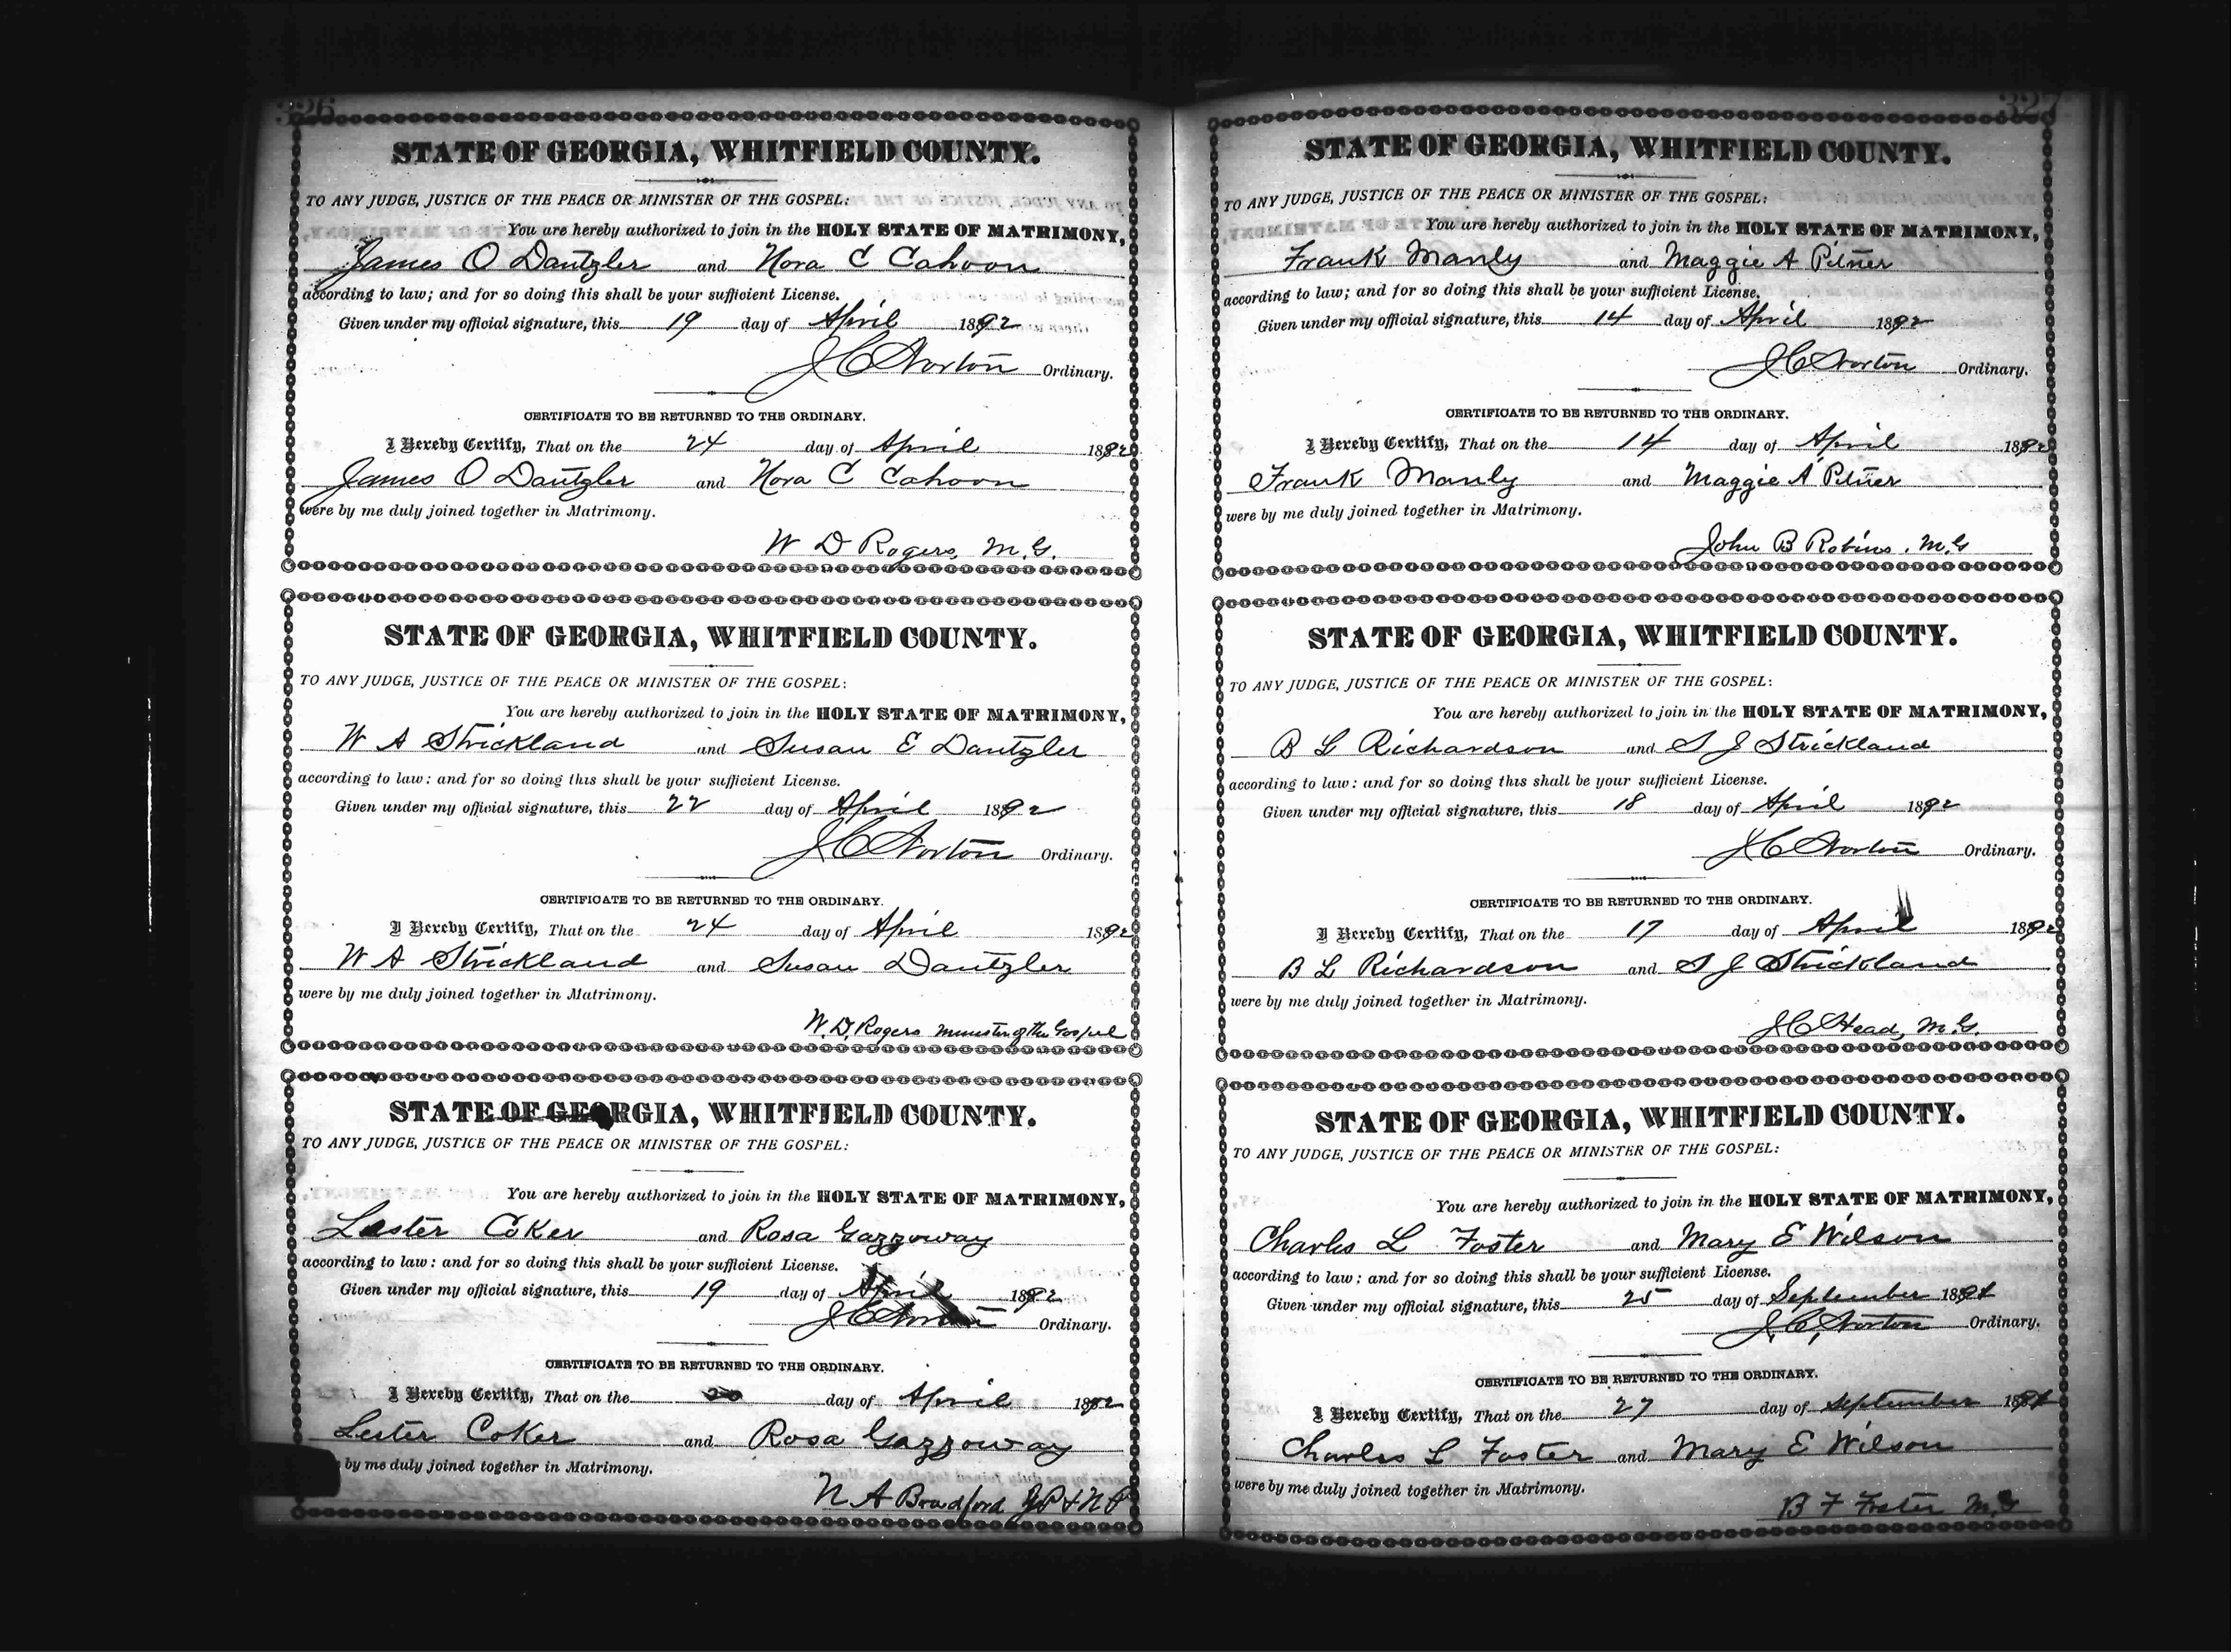 326
STATE OF GEORGIA, WHITFIELD COUNTY.
TO ANY JUDGE, JUSTICE OF THE PEACE OR MINISTER OF THE GOSPEL:
You are hereby authorized to join in the HOLY STATE OF MATRIMONY,
James O Dantzler and Nora C Cahoon
according to law; and for so doing this shall be your sufficient License.
Given under my official signature, this 19 day of April 1892
J C Norton Ordinary.
CERTIFICATE TO BE RETURNED TO THE ORDINARY.
I Hereby Certify, That on the 24 day of April 1892
James O Dantzler and Nora C Cahoon
were by me duly joined together in Matrimony.
W D Rogers, M.G.
STATE OF GEORGIA, WHITFIELD COUNTY.
TO ANY JUDGE, JUSTICE OF THE PEACE OR MINISTER OF THE GOSPEL:
You are hereby authorized to join in the HOLY STATE OF MATRIMONY,
W A Strickland and Susan E Dantzler
according to law: and for so doing this shall be your sufficient License.
Given under my official signature, this 22 day of April 1892
J C Norton Ordinary.
CERTIFICATE TO BE RETURNED TO THE ORDINARY.
I Hereby Certify, That on the 24 day of April 1892
W A Strickland and Susan Dantzler
were by me duly joined together in Matrimony.
W. D. Rogers Minister of the Gospel
STATE OF GEORGIA, WHITFIELD COUNTY.
TO ANY JUDGE, JUSTICE OF THE PEACE OR MINISTER OF THE GOSPEL:
You are hereby authorized to join in the HOLY STATE OF MATRIMONY,
Lester Coker and Rosa Gazzoway
according to law: and for so doing this shall be your sufficient License.
Given under my official signature, this 19 day of April 1892
J C Norton Ordinary.
CERTIFICATE TO BE RETURNED TO THE ORDINARY.
I Hereby Certify, That on the 20 day of April 1892
Lester Coker and Rosa Gazzoway
by me duly joined together in Matrimony.
N A Bradford JP & NP
327
STATE OF GEORGIA, WHITFIELD COUNTY.
TO ANY JUDGE, JUSTICE OF THE PEACE OR MINISTER OF THE GOSPEL:
You are hereby authorized to join in the HOLY STATE OF MATRIMONY,
Frank Manly and Maggie A Pitner
according to law; and for so doing this shall be your sufficient License.
Given under my official signature, this 14 day of April 1892
J C Norton Ordinary.
CERTIFICATE TO BE RETURNED TO THE ORDINARY.
I Hereby Certify, That on the 14 day of April 1892
Frank Manly and Maggie A Pitner
were by me duly joined together in Matrimony.
John B Robins, M.G
STATE OF GEORGIA, WHITFIELD COUNTY.
TO ANY JUDGE, JUSTICE OF THE PEACE OR MINISTER OF THE GOSPEL:
You are hereby authorized to join in the HOLY STATE OF MATRIMONY,
B L Richardson and S J Strickland
according to law: and for so doing this shall be your sufficient License.
Given under my official signature, this 18 day of April 1892
J C Norton Ordinary.
CERTIFICATE TO BE RETURNED TO THE ORDINARY.
I Hereby Certify, That on the 17 day of April 1892
B L Richardson and S J Strickland
were by me duly joined together in Matrimony.
J C Head, M.G.
STATE OF GEORGIA, WHITFIELD COUNTY.
TO ANY JUDGE, JUSTICE OF THE PEACE OR MINISTER OF THE GOSPEL:
You are hereby authorized to join in the HOLY STATE OF MATRIMONY,
Charles L Foster and Mary E Wilson
according to law; and for so doing this shall be your sufficient License.
Given under my official signature, this 25 day of September 1891
J. C. Norton Ordinary.
CERTIFICATE TO BE RETURNED TO THE ORDINARY.
I Hereby Certify, That on the 27 day of September 1891
Charles L Foster and Mary E Wilson
were by me duly joined together in Matrimony.
B F Foster M.G